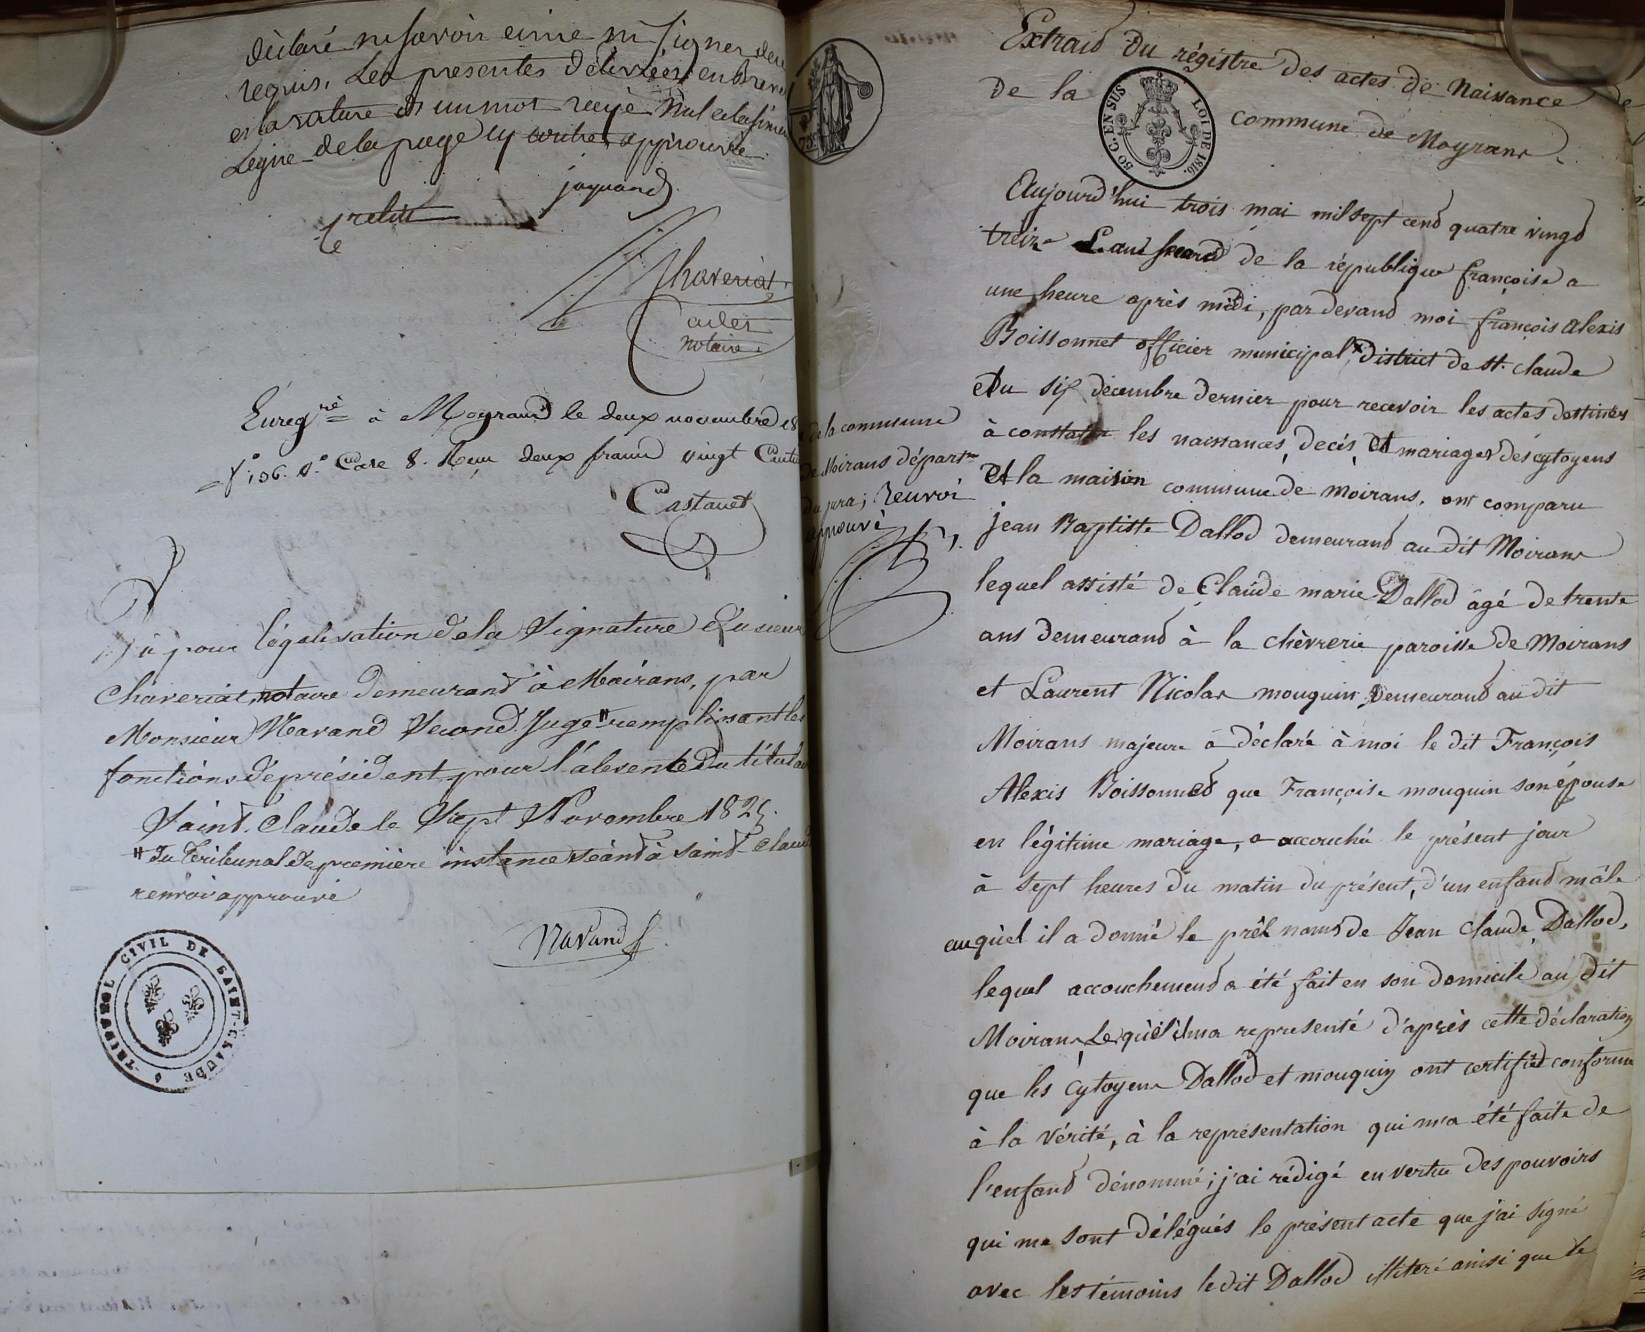 déclaré ne savoir écrire ni signer de ce
requis. Les présentes délivrées en brevet
et la rature d'un mot rayé nul
Ligne de la page cy contre approuvée
jaquand
Chaveriat
notaire
Euregré à Moyrans le deux novembre
fo 136. Vo Case 8. Reçu deux francs vingt Cent
Castanet
Vu pour légalisation de la Signature du sieur
Chaveriat, notaire demeurant à Moirans, par
Monsieur Navand Second Juge # remplissant les
fonctions de président, pour l'absence du titulai
Saint-Claude le Sept Novembre 1825.
# du Tribunal de première instance séant à Saint-Claude
renvoi approuvé
Navand
TRIBUNAL CIVIL DE SAINT-CLAUDE
Extraid du régistre des actes de Naissance
de la commune de Moyrans
EN SUS LOI DE 1816.
Aujourd'hui trois mai mil sept cend quatre vingd
treize L'and second de la république françoise a
une heure après midi, par devand moi françois Alexis
Boissonnet officier municipal x District de St. Claude
et du six décembre dernier pour recevoir les actes destinées
à constater les naissances, decès, et mariages des cytoyens
et la maison commune de moirans. ont comparu
jean Baptiste Dallod demeurand au dit Moirans
lequel assisté de Claude marie Dallod âgé de trente
ans demeurand à la chèvrerie paroisse de Moirans
et Laurent Nicolas mouquin demeurand au dit
Moirans majeure a déclaré à moi le dit François
Alexis Boissonned que Françoise mouquin son épouse
en légitime mariage, a accouché le présent jour
à sept heures du matin du présent, d'un enfand mâle
auquel il a donné le prénoms de Jean Claude Dallod,
lequel accouchemend a été fait en son domicile au dit
Moirans, Lequel il ma representé d'après cette déclaration
que les cytoyens Dallod et mouquin ont certifié conforme
à la vérité, à la représentation qui m'a été faite de
l'enfand dénommé; j'ai rédigé en vertu des pouvoirs
qui me sont délégués le présent acte que j'ai signé
avec les témoins le dit Dallod illiteré ainsi que le
de la commune
de Moirans départm
du jura; renvoi
approuvé